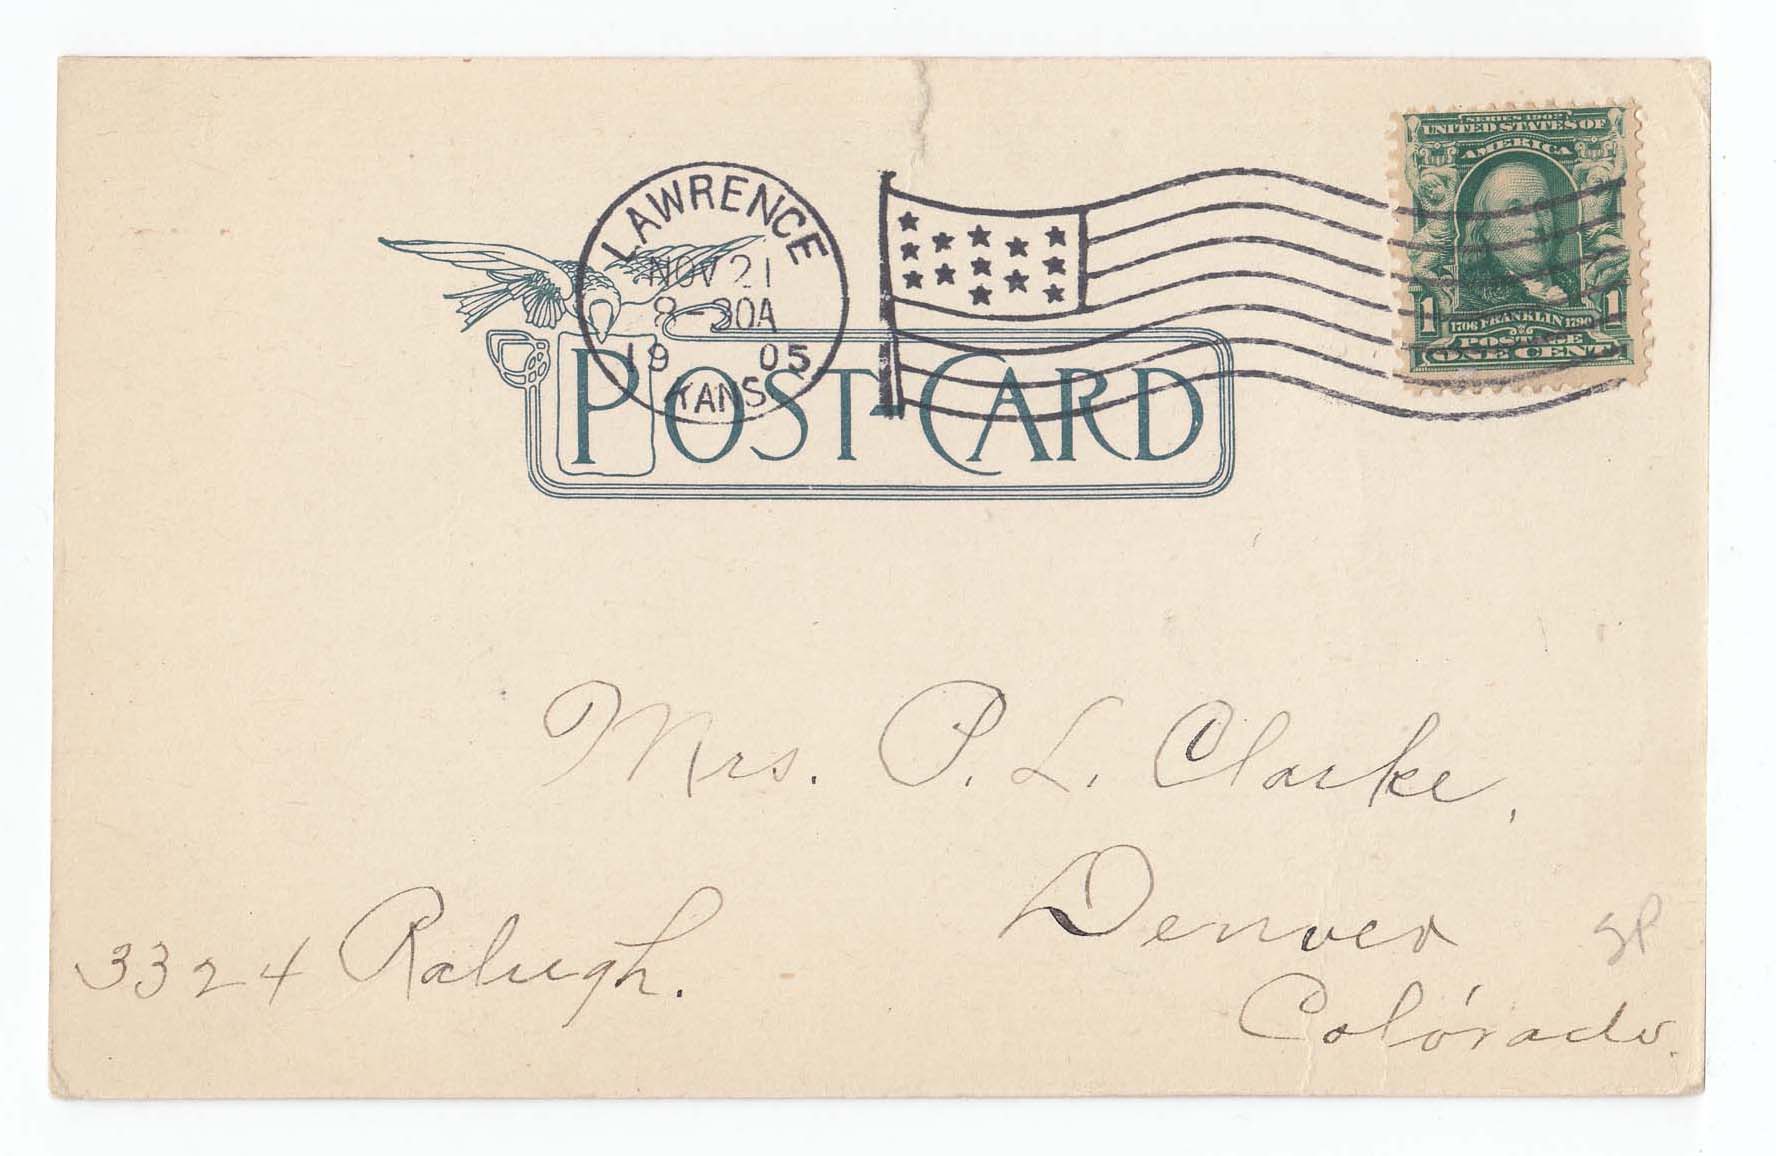 SERIES 1902
UNITED STATES OF
AMERICA
1 1706 FRANKLIN 1790 1
POSTAGE
ONE CENT
LAWRENCE
NOV 21
8-30A
19 05
KANS
POST-CARD
Mrs. P. L. Clarke,
Denver
Colorado.
3324 Raleigh.